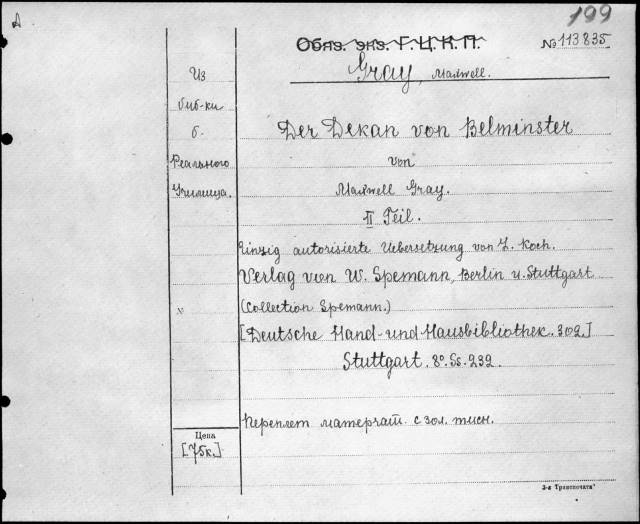 A
199
Обяз. экз. Г.Ц.К.П.
№ 113835
Gray, Maxwell.
Из
биб-ки
б.
Реального
Училища.
Der Dekan von Belminster
von
Maxwell Gray.
II Teil.
Einzig autorisierte Uebersetzung von Z. Koch.
Verlag von W. Spemann, Berlin u. Stuttgart
(Collection Spemann.)
[Deutsche Hand- und Hausbibliothek. 302.]
Stuttgart. 8°. Ss. 232.
Переплет матерчат. с зол. тисн.
Цена
[75к.]
3-я Транспочати"